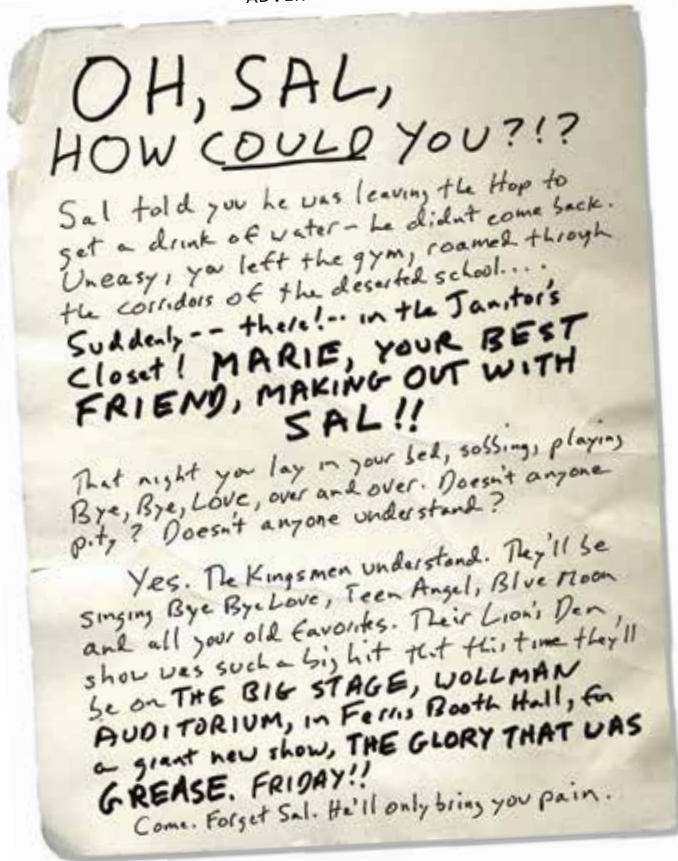 OH, SAL,
HOW COULD YOU?!?
Sal told you he was leaving the Hop to
get a drink of water - he didn't come back.
Uneasy, you left the gym, roamed through
the corridors of the deserted school....
Suddenly -- there! -- in the Janitor's
Closet! MARIE, YOUR BEST
FRIEND, MAKING OUT WITH
SAL!!
That night you lay in your bed, sobbing, playing
Bye, Bye, Love, over and over. Doesn't anyone
pity? Doesn't anyone understand?
Yes. The Kingsmen understand. They'll be
singing Bye Bye Love, Teen Angel, Blue Moon
and all your old favorites. Their Lion's Den
show was such a big hit that this time they'll
be on THE BIG STAGE, WOLLMAN
AUDITORIUM, in Ferris Booth Hall, for
a giant new show, THE GLORY THAT WAS
GREASE. FRIDAY!!
Come. Forget Sal. He'll only bring you pain.